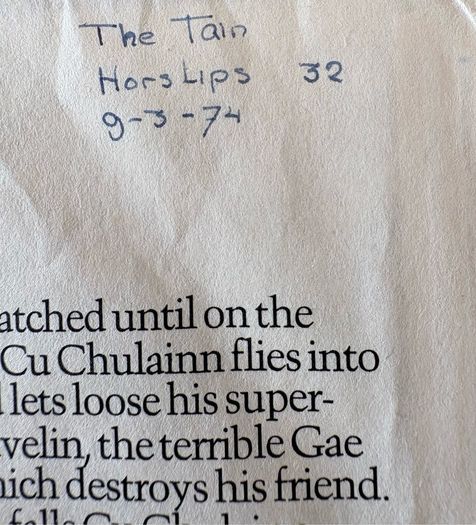 The Tain
HorsLips 32
9-3-74
atched until on the
Cu Chulainn flies into
lets loose his super-
velin, the terrible Gae
ich destroys his friend.